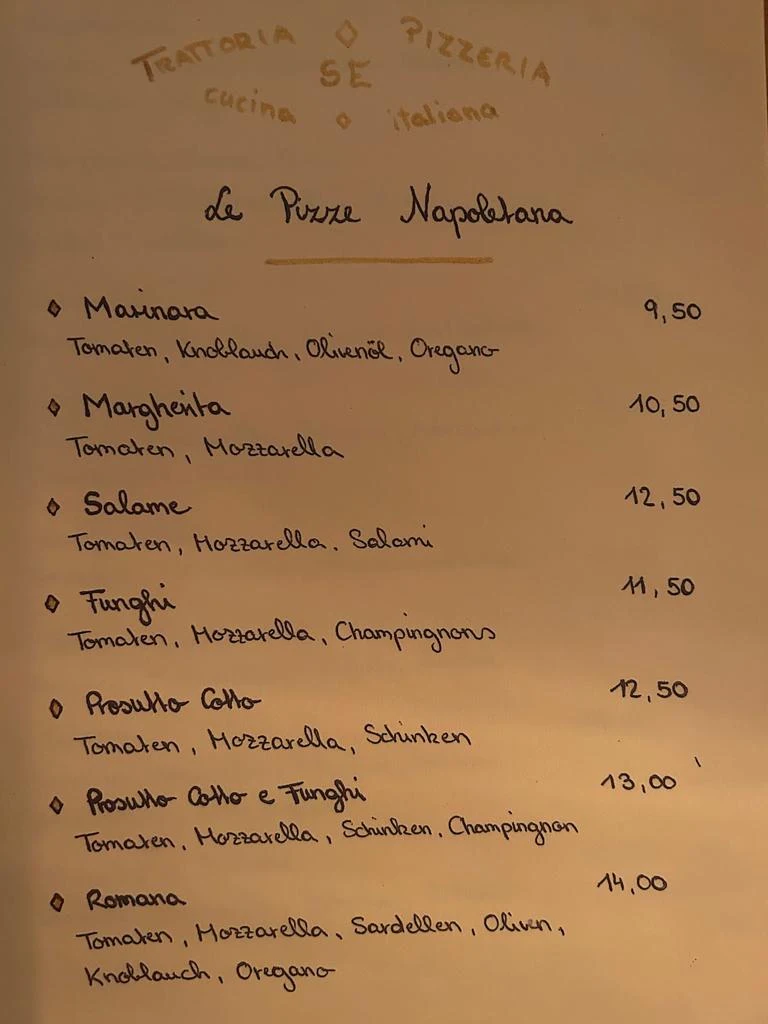 TRATTORIA ◇ PIZZERIA
SE
cucina ◇ italiana
Le Pizze Napoletana
Marinara 9,50
Tomaten, Knoblauch, Olivenöl, Oregano
Margherita 10,50
Tomaten, Mozzarella
Salame 12,50
Tomaten, Mozzarella. Salami
Funghi 11,50
Tomaten, Mozzarella, Champingnons
Prosutto Cotto 12,50
Tomaten, Mozzarella, Schinken
Prosutto Cotto e Funghi 13,00
Tomaten, Mozzarella, Schinken, Champingnon
Romana 14,00
Tomaten, Mozzarella, Sardellen, Oliven,
Knoblauch, Oregano